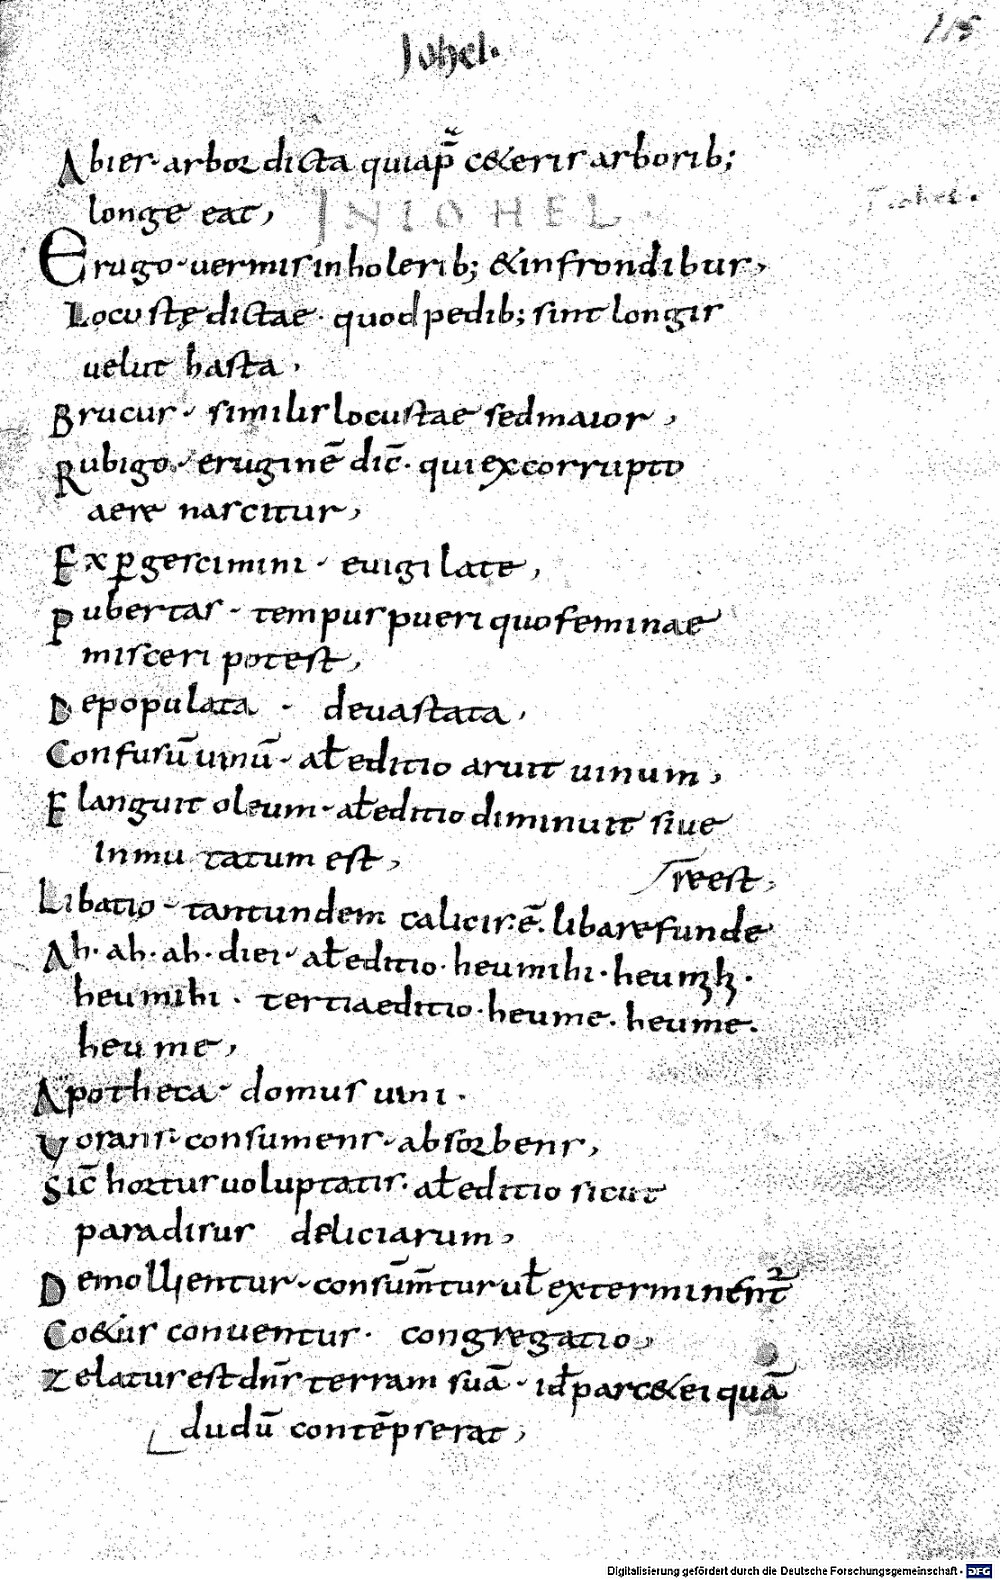 Johel.
115
Abies· arbor dicta quia p̃ c&eris arborib;
longe eat,
IN IOHEL.
Iohel.
Erugo· uermis in holerib; & in frondibus,
Locustę dictae· quod pedib; sint longis
uelut hasta,
Brucus· similis locustae sed maior,
Rubigo· eruginē dic̄· qui ex corrupto
aere nascitur,
Expergescimini· euigilate,
Pubertas· tempus pueri quo feminae
misceri potest,
Depopulata· deuastata,
Confusū uinū· aƚ editio aruit uinum,
Elanguit oleum· aƚ editio diminuit siue
inmutatum est,
re est,
Libatio· tantundem calicis·ē· libare funde
Ah· ah· ah· diei· aƚ editio· heu mihi· heu mꝫhꝫ·
heu mihi· tertia editio· heu me· heu me·
heu me,
Apotheca· domus uini·
Vorans· consumens· absorbens,
Sic̄ hortus uoluptatis· aƚ editio sicut
paradisus deliciarum,
Demollientur· consūm̄tur uƚ exterminent᷑
Co&us conuentus· congregatio,
Zelatus est dn̄s terram suā· id̄ parc& ei quā
dudū contēpserat,
Digitalisierung gefördert durch die Deutsche Forschungsgemeinschaft - DFG